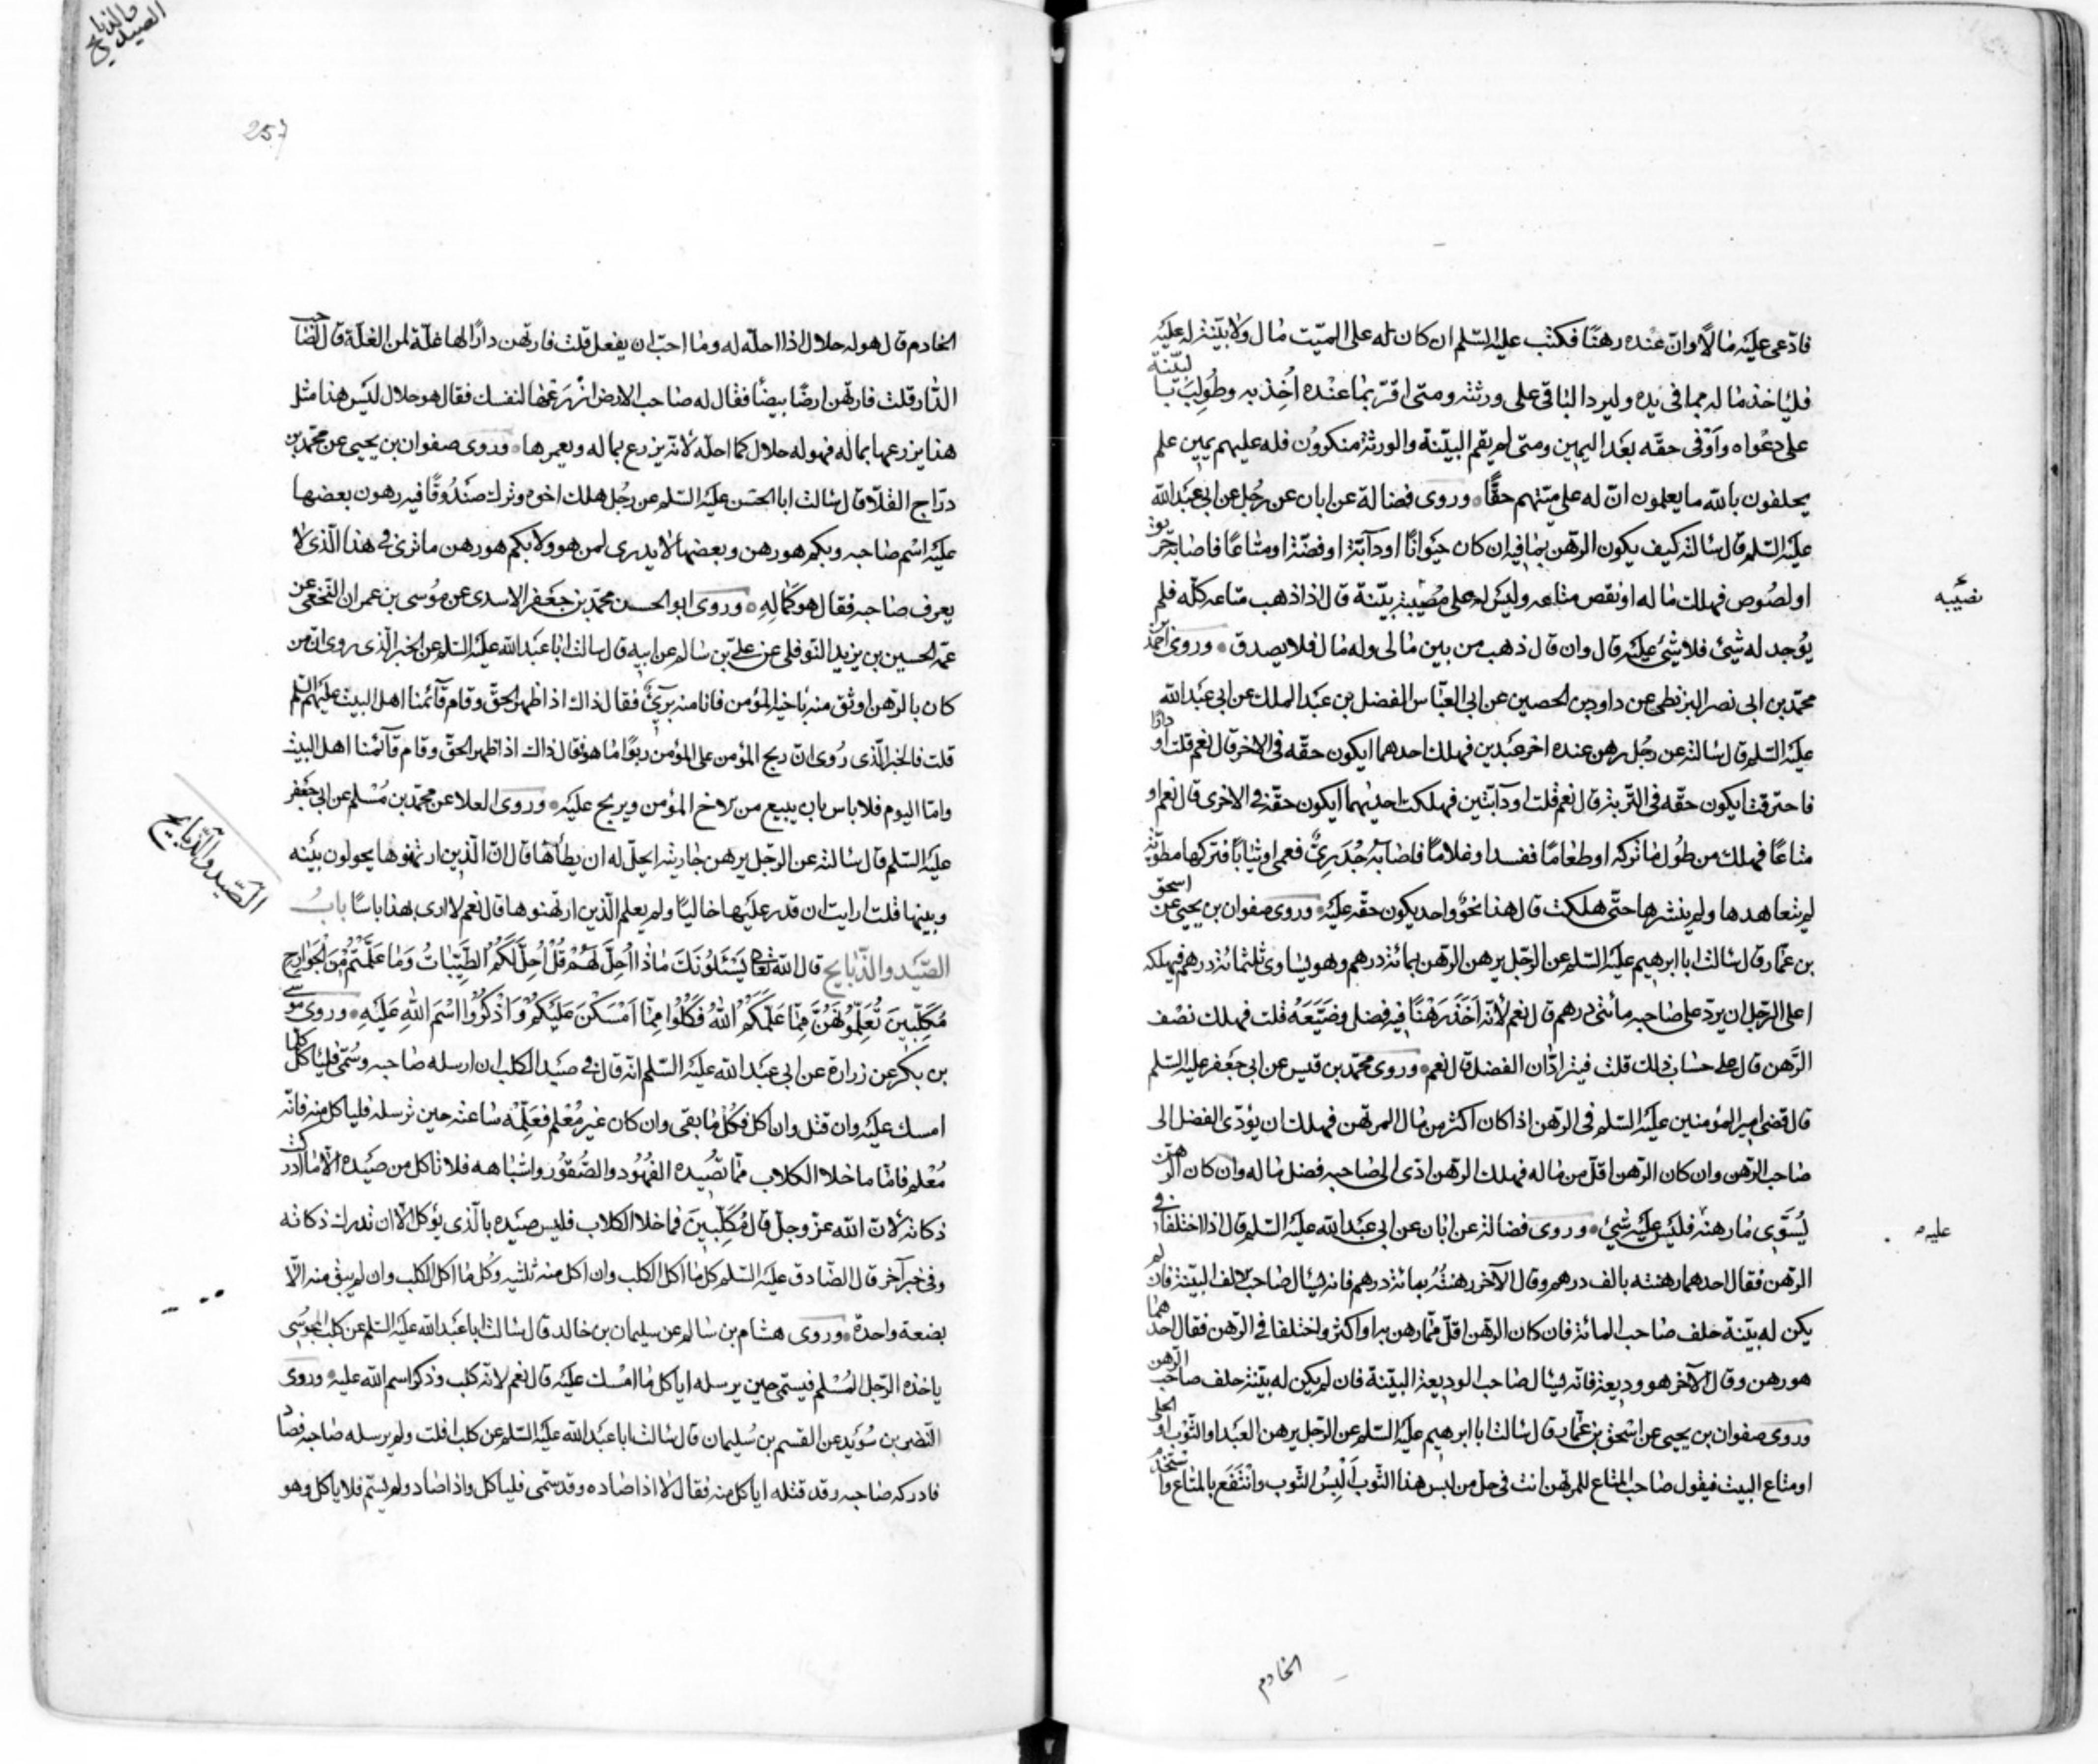 فادّعى عليه مالًا وانّ عنده رهنًا فكتب عليه السّلم ان كان له على الميّت مال ولا بيّنة له عليه
فلياخذ ماله مما فى يده وليرد الباقى على ورثته ومتى اقرّ بما عنده اُخِذ به وطُولِبَ بالبيّنة
على دعواه وَاَوْفى حقّه بعد اليمين ومتى لم يقم البيّنة والورثة منكروُن فله عليهم يمين علم
يحلفون بالله ما يعلمون انّ له على ميّتهم حقًّا وروى فضالة عن ابان عن رجُل عن ابى عبد الله
عليه السّلم قال سالته كيف يكون الرّهن بما فيه ان كان حَيَوانًا او دآبّة او فضّة او متاعًا فاصابه حريق
او لصُوص فهلك ماله او نقص متاعه وليس له على مُصيبته بيّنة قال اذا ذهب متاعه كلّه فلم
نصيبه
يُوجد له شئ فلا شئ عليه قال وان قال ذهب من بين مالى وله مال فلا يصدق وروى احمد بن
محمّد بن ابى نصر البزنطى عن داود بن الحصين عن ابى العبّاس الفضل بن عبد الملك عن ابى عبد الله
عليه السّلم قال سالته عن رجُل رهن عنده اخر عبدين فهلك احدهما ايكون حقّه فى الاخر قال نعم قلت او دارًا
فاحترقت ايكون حقّه فى التّربة قال نعم قلت او دآبّتين فهلكت احديهما ايكون حقّه فى الاخرى قال نعم او
متاعًا فهلك من طُول ما تركه او طعامًا ففسد او غلامًا فاصابه جُدَرِىٌّ فعمى او ثيابًا فتركها مطويّة
لم يتعاهدها ولم ينشرها حتّى هلكت قال هذا نحوٌ واحد يكون حقّه عليه وروى صفوان بن يحيى عن اسحق
بن عمّار قال سالت ابا ابرهيم عليه السّلم عن الرّجل يرهن الرّهن بمائة درهم وهو يساوى ثلثمائة درهم فيهلكه
اعلى الرّجل ان يردّ على صاحبه مأتى درهم قال نعم لانّه اَخَذَ رَهْنًا فيه فضل وضَيَّعَهُ قلت فهلك نصْف
الرَّهن قال على حساب ذلك قلت فيترادّان الفضل قال نعم وروى محمّد بن قيس عن ابى جعفر عليه السّلم
قال قضى امير المؤمنين عليه السّلم فى الرّهن اذا كان اكثر من مال المرتهن فهلك ان يؤدّى الفضل الى
صاحب الرّهن وان كان الرّهن اقلّ من ماله فهلك الرّهن ادّى الى صاحبه فضل ماله وان كان الرّهن
يُسَوّى ما رهنه فليس عليه شئ وروى فضالة عن ابان عن ابى عبد الله عليه السّلم قال اذا اختلفا فى
عليه
الرّهن فقال احدهما رهنته بالف درهم وقال الآخر رهنتُهُ بمائة درهم فانه يسال صاحب الالف البيّنة فان لم
يكن له بيّنة حلف صاحب المائة فان كان الرّهن اقلّ ممّا رهن به او اكثر واختلفا فى الرّهن فقال احدهما
هو رهن وقال الآخر هو وديعة فانّه يسال صاحب الوديعة البيّنة فان لم يكن له بيّنة حلف صاحب الرّهن
وروى صفوان بن يحيى عن اسْحق بن عمّار قال سالت ابا ابرهيم عليه السّلم عن الرّجل يرهن العبد او الثّوب او الحلى
او متاع البيت فيقول صاحب المتاع للمرتهن انت فى حل من لبس هذا الثّوب اَلْبِسُ الثّوب وانْتَفَع بالمتاع واستخدم
الخادم
والذبايح
الصيد
257
الخادم قال هو له حلال اذا احلّه له وما احبّ ان يفعل قلت فارتهن دارًا لها غلّة لمن الغلّة قال لصاحب
الدّار قلت فارتهن ارضًا بيضًا فقال له صاحب الارض ازْرَعْها لنفسك فقال هو حلال ليس هذا مثل
هذا يزرعها بماله فهو له حلال كما احلّه لانّه يزرع بماله ويعمرها وروى صفوان بن يحيى عن محمّد بن
درّاج القلّا قال سالت ابا الحسن عليه السّلم عن رجُل هلك اخوه وترك صَنْدُوقًا فيه رهون بعضها
عليه اسْم صاحبه وبكم هو رهن وبعضها لا يدرى لمن هو ولا بكم هو رهن ما ترى فى هذا الّذى لا
يعرف صاحبه فقال هو كَمالِهِ وروى ابو الحسن محمّد بن جعفر الاسدى عن موسى بن عمران النّخعى عن
عمّه الحسين بن يزيد النّوفلى عن علىّ بن سالم عن ابيه قال سالت ابا عبد الله عليه السّلم عن الخبر الّذى روى انّ من
كان بالرّهن اوثق منه باخيه المؤمن فانا منه برىٌ فقال ذاك اذا ظهر الحقّ وقام قآئمنا اهل البيت عليهم السّلم
قلت فالخبر الّذى رُوى انّ ربح المؤمن على المؤمن ربوًا ما هو فقال ذاك اذا ظهر الحقّ وقام قآئمنا اهل البيت
وامّا اليوم فلا باس بان يبيع من الاخ المؤمن ويربح عليه وروى العلا عن محمّد بن مُسْلم عن ابى جعفر
عليه السّلم قال سالته عن الرّجل يرهن جاريته ايحلّ له ان يطأها قال انّ الّذين ارتهنوها يحولون بينه
الصَّيد والذّبايح
وبينها قلت ارايت ان قدر عليها خاليًا ولم يعلم الّذين ارتهنوها قال نعم لا ارى بهذا باسًا بابُ
الصَّيد والذّبايح قال الله تعالى يَسْئَلُونَكَ ماذا اُحِلَّ لَهُمْ قُلْ اُحِلَّ لَكُمُ الطَّيِّباتُ وَما عَلَّمْتُمْ مِنَ الْجَوارِحِ
مُكَلِّبينَ تُعَلِّمُونَهُنَّ مِمّا عَلَّمَكُمُ اللهُ فَكُلُوا مِمّا اَمْسَكْنَ عَلَيْكُمْ وَاذْكُرُوا اسْمَ اللهِ عَلَيْهِ وروى موسى
بن بكر عن زرارة عن ابى عبد الله عليه السّلم انه قال فى صيد الكلب ان ارسله صاحبه وسمّى فلياكل كلّما
امسك عليه وان قتل وان اكل فكُلْ ما بقى وان كان غير مُعْلم فعَلِّمْه ساعته حين ترسله فلياكل منه فانّه
مُعْلم فامّا ما خلا الكلاب ممّا تصيده الفهُود والصُّقوُر واشباهه فلا تاكل من صيده الّا ما ادركت
ذكاته لانّ الله عزّ وجلّ قال مُكَلِّبينَ فما خلا الكلاب فليس صَيْده بالّذى يؤكل الّا ان تدرك ذكاته
وفى خبر آخر قال الصّادق عليه السّلم كل ما اكل الكلب وان اكل منه ثلثيه وكُل ما اكل الكلب وان لم يبق منه الّا
بضعة واحدة وروى هشام بن سالم عن سليمان بن خالد قال سالت ابا عبد الله عليه السّلم عن كلب المجوسى
ياخذه الرّجل المُسْلم فيسمّى حين يرسله اياكل ما امْسك عليه قال نعم لانّه كلب وذكر اسم الله عليه وروى
النّضر بن سُوَيد عن القسم بن سُليمان قال سالت ابا عبد الله عليه السّلم عن كلب افلت ولم يرسله صاحبه فصاد
فادركه صاحبه وقد قتله اياكل منه فقال لا اذا صاده وقد سمّى فلياكل واذا صاد ولم يسمّ فلا ياكل وهو